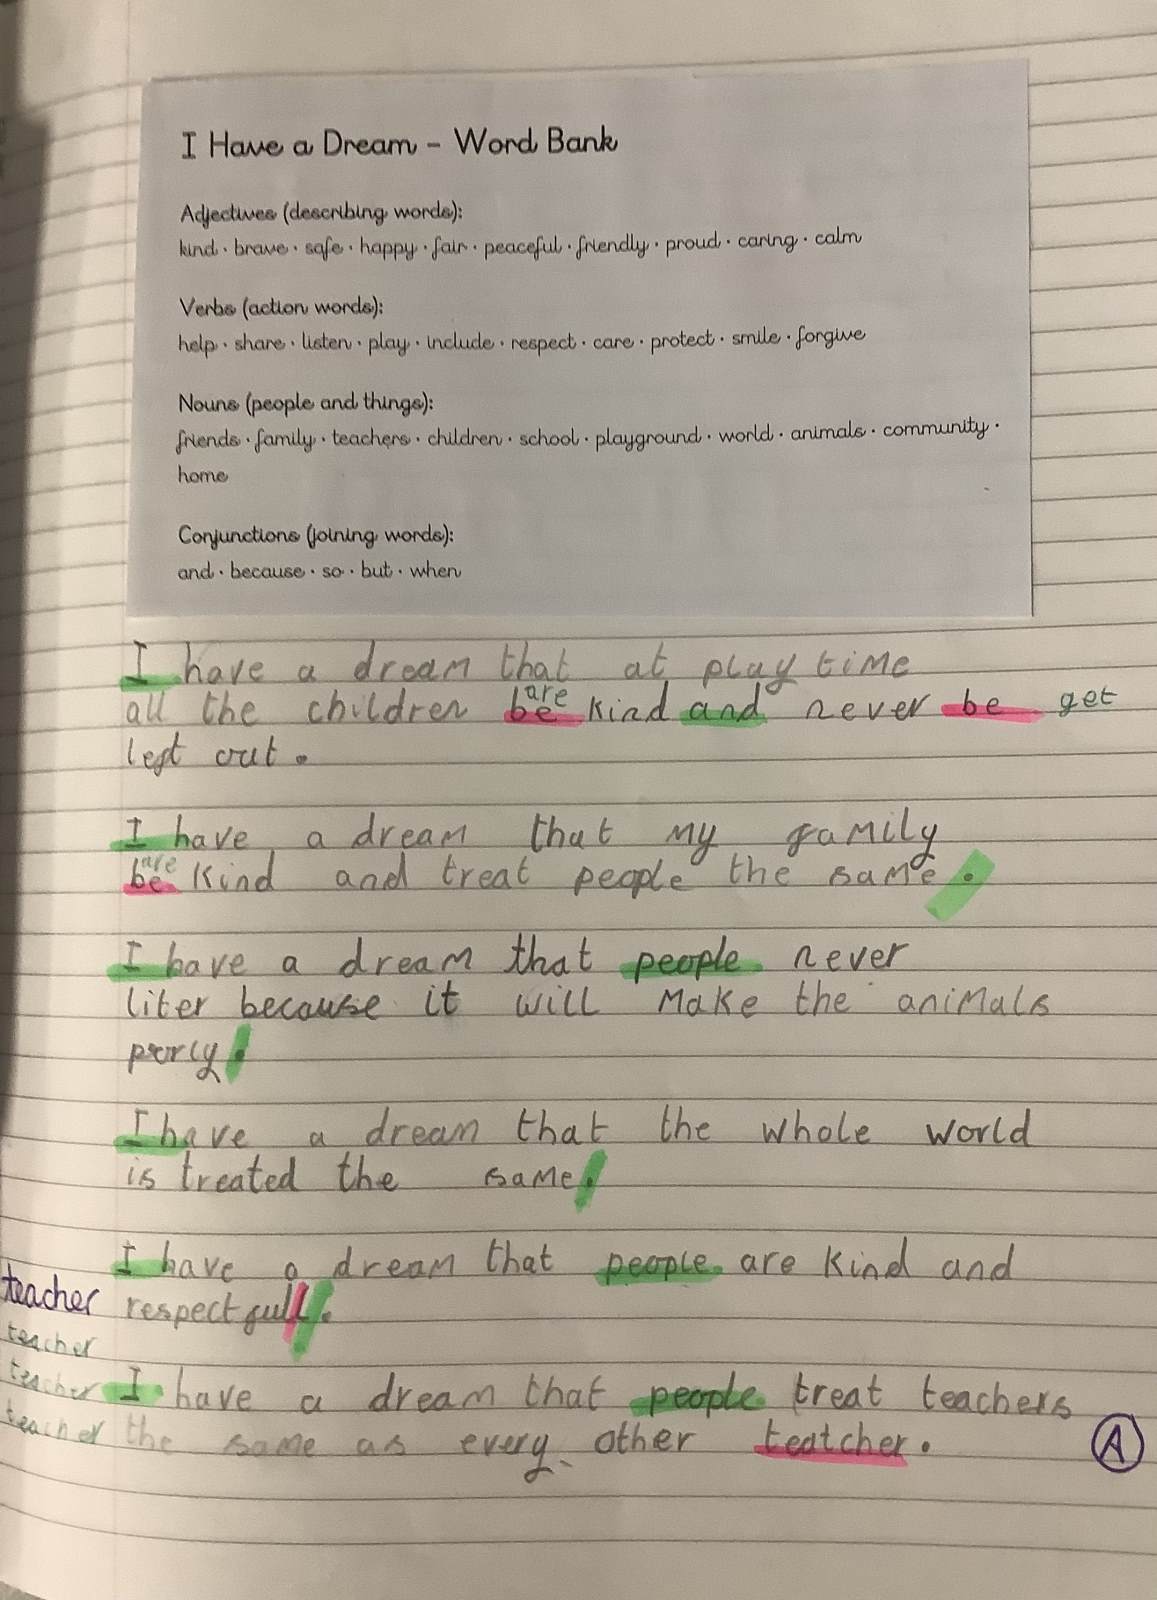 I Have a Dream – Word Bank
Adjectives (describing words):
kind · brave · safe · happy · fair · peaceful · friendly · proud · caring · calm
Verbs (action words):
help · share · listen · play · include · respect · care · protect · smile · forgive
Nouns (people and things):
friends · family · teachers · children · school · playground · world · animals · community ·
home
Conjunctions (joining words):
and · because · so · but · when
I have a dream that at play time
are
all the children be kind and never be get
left out.
I have a dream that my family
are
be kind and treat people the same.
I have a dream that people never
liter because it will make the animals
porly.
I have a dream that the whole world
is treated the same.
I have a dream that people are kind and
teacher respectfull.
teacher
teacher I have a dream that people treat teachers
teacher the same as every other teatcher.
A